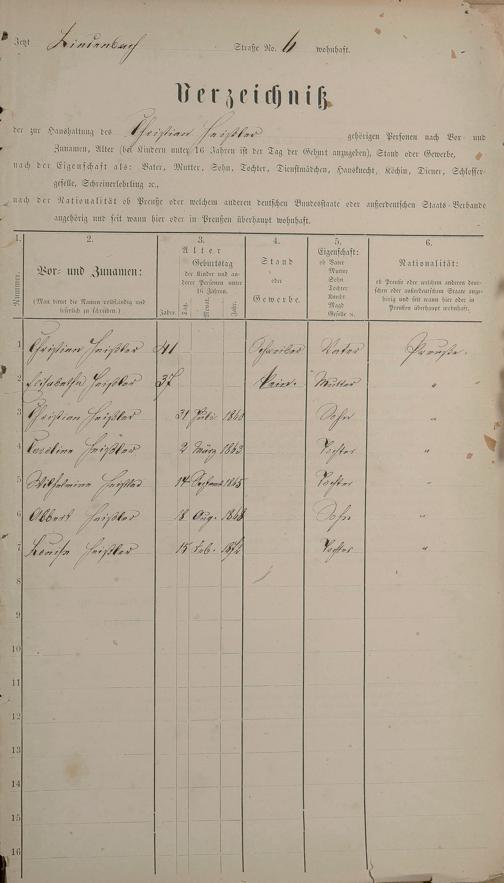 Jetzt Lindenbach Straße No. 6 wohnhaft.
Verzeichniß
der zur Haushaltung des Christian Heißler gehörigen Personen nach Vor- und
Zunamen, Alter (bei Kindern unter 16 Jahren ist der Tag der Geburt anzugeben), Stand oder Gewerbe,
nach der Eigenschaft als: Vater, Mutter, Sohn, Tochter, Dienstmädchen, Hausknecht, Köchin, Diener, Schlosser-
geselle, Schreinerlehrling ꝛc.,
nach der Nationalität ob Preuße oder welchem anderen deutschen Bundesstaate oder außerdeutschen Staats-Verbande
angehörig und seit wann hier oder in Preußen überhaupt wohnhaft.
1. 2. 3. 4. 5. 6.
Nummer.
Vor- und Zunamen:
(Man bittet die Namen vollständig und
leserlich zu schreiben.)
Alter
Geburtstag
der Kinder und an-
derer Personen unter
16 Jahren.
Jahre. Tag. Monat. Jahr.
Stand
oder
Gewerbe.
Eigenschaft:
ob Vater
Mutter
Sohn
Tochter
Knecht
Magd
Geselle ꝛc.
Nationalität:
ob Preuße oder welchem anderen deut-
schen oder außerdeutschen Staate ange-
hörig und seit wann hier oder in
Preußen überhaupt wohnhaft.
1 Christian Heißler 41 Schreiber Vater Preuße.
2 Elisabetha Heißler 37 Mutter "
3 Christian Heißler 31 Juli 1860 Sohn "
4 Caroline Heißler 2 März 1863 Tochter "
5 Wilhelmine Heißler 14 1865 Tochter "
6 Albert Heißler 18 Aug. 1868 Sohn "
7 Louisa Heißler 15 Feb. Tochter "
8
9
10
11
12
13
14
15
16